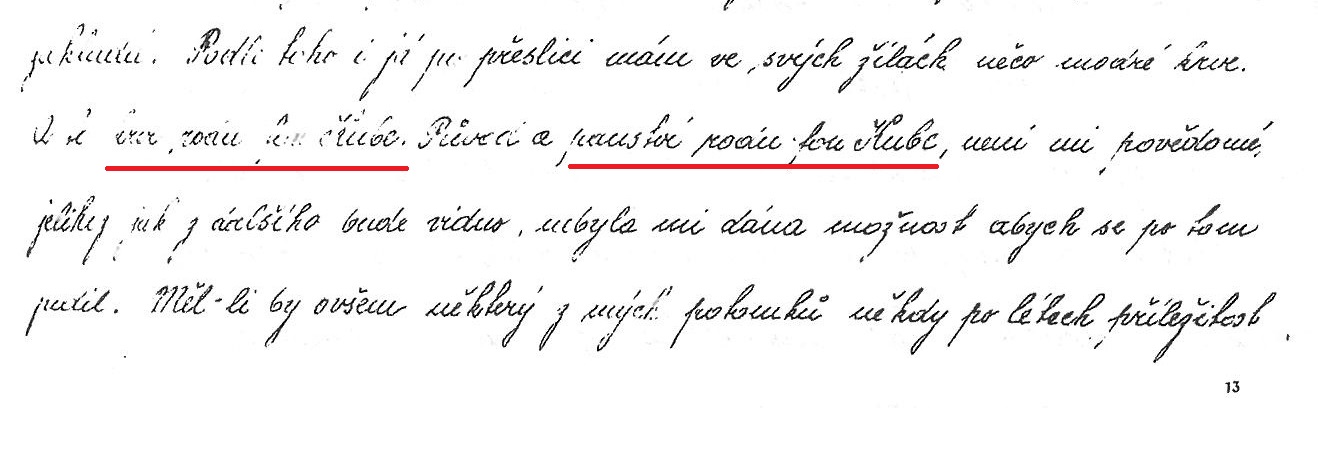 Podle toho i já po přeslici mám ve svých žilách něco modré krve.
rodu fon Škubc. Původ a panství rodu fon Škubc, není mi povědomé,
jelikož jak z dalšího bude vidno, nebyla mi dána možnost abych se po tom
pídil. Měl-li by ovšem některý z mých potomků někdy po létech příležitost
13